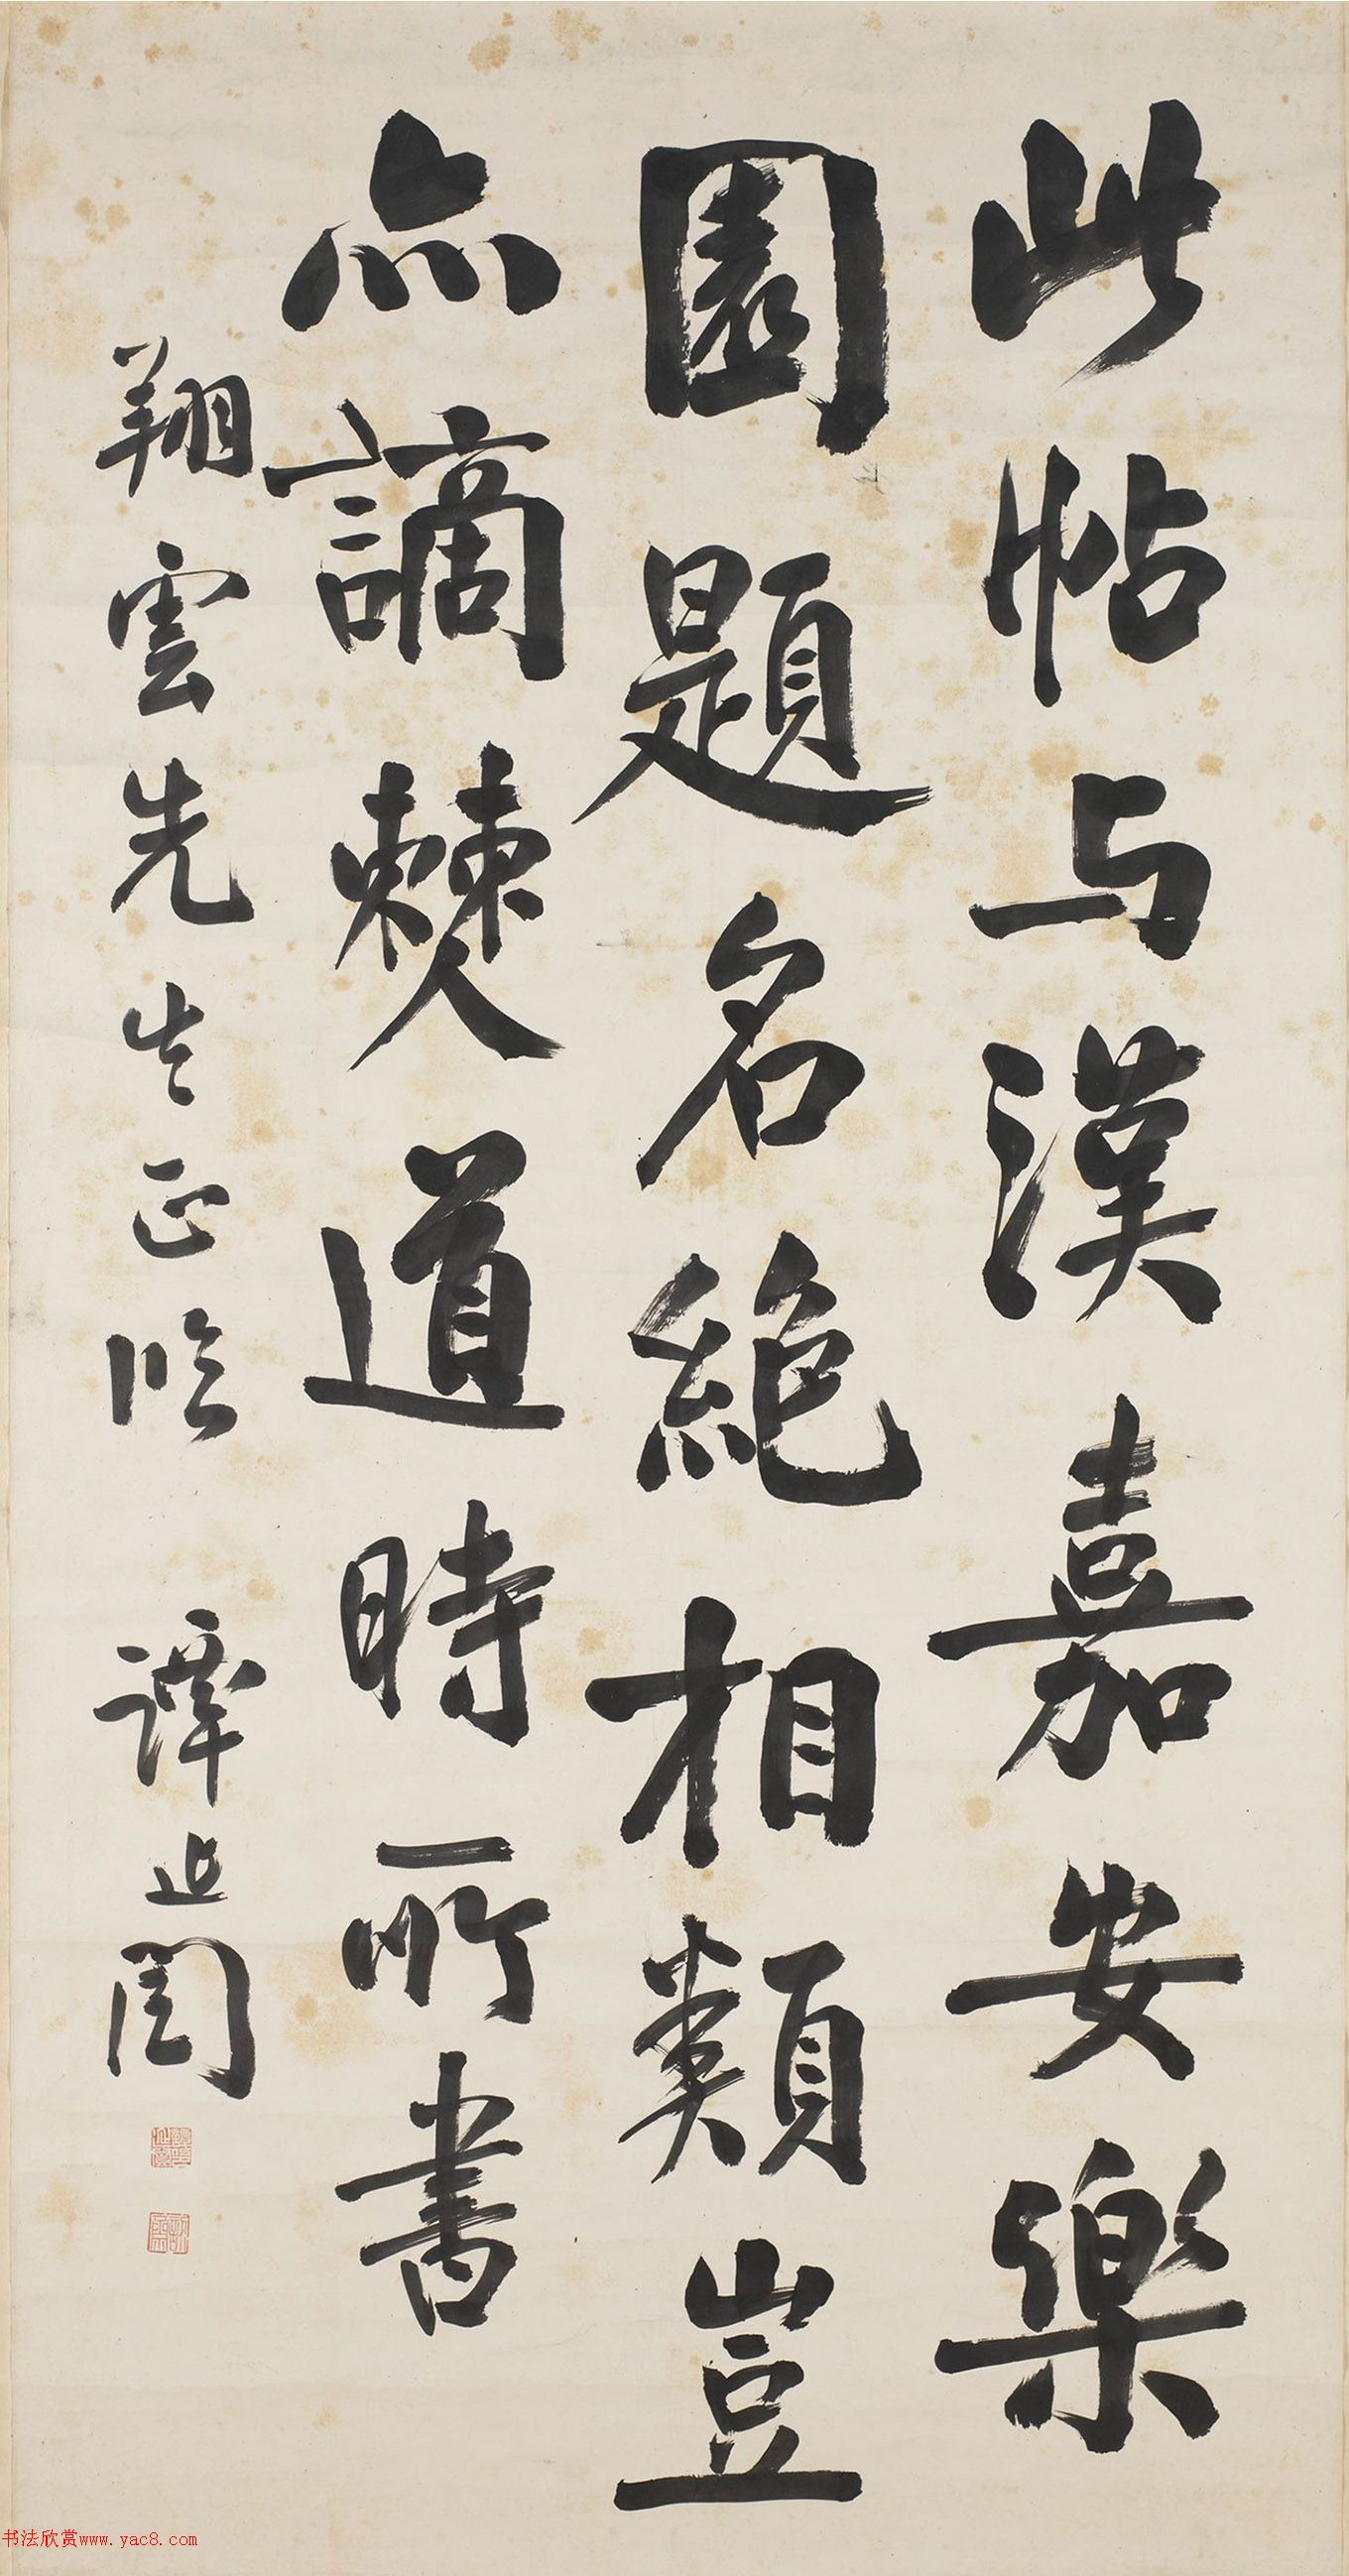 此帖与漢嘉安樂
園題名絶相類豈
亦謫僰道時所書
翔雲先生正臨 譚延闓
书法欣赏www.yac8.com